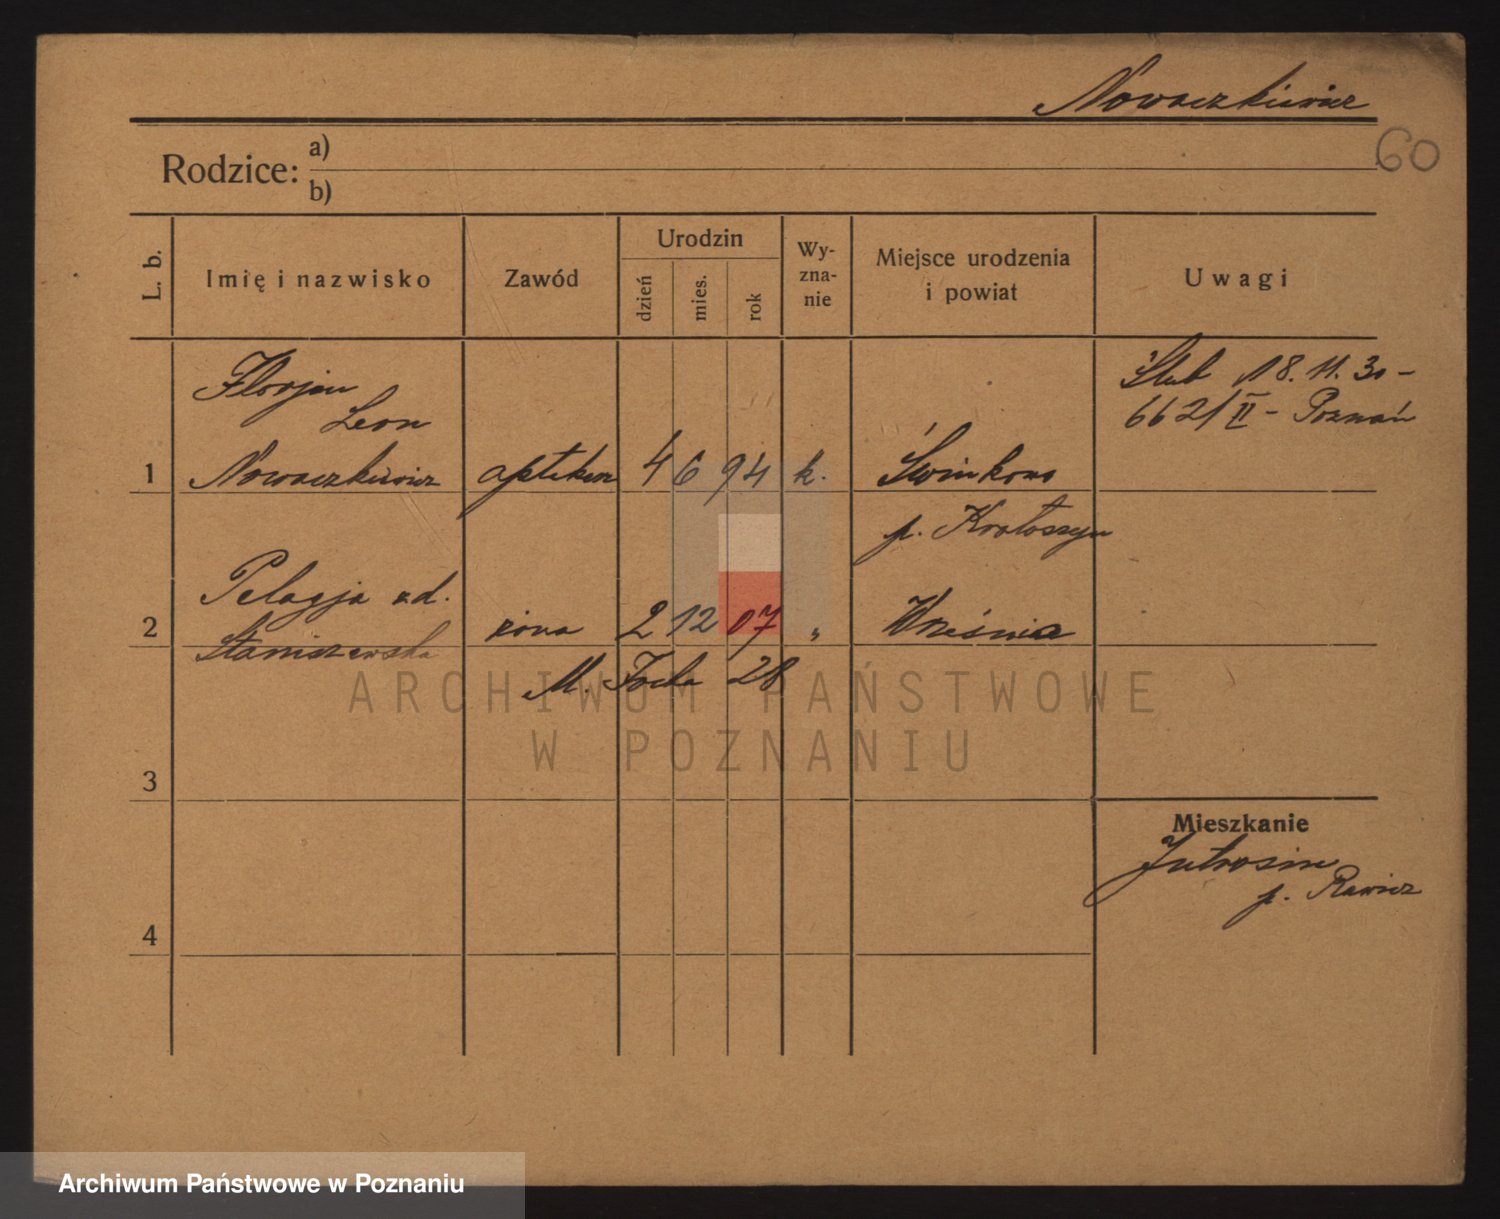 Nowaczkiewicz
60
Rodzice: a)
b)
L. b.
Imię i nazwisko
Zawód
Urodzin
dzień
mies.
rok
Wy-
zna-
nie
Miejsce urodzenia
i powiat
Uwagi
Florjan
Leon
1 Nowaczkiewicz aptekarz 4 6 94 k. Świnkowo
p. Krotoszyn
Ślub 18. 11. 30 -
662/II - Poznań
Pelagja zd.
2 Staniszewska żona 2 12 07 „ Września
M. Focha 28
ARCHIWUM PAŃSTWOWE
W POZNANIU
3
Mieszkanie
Jutrosin
p. Rawicz
4
Archiwum Państwowe w Poznaniu